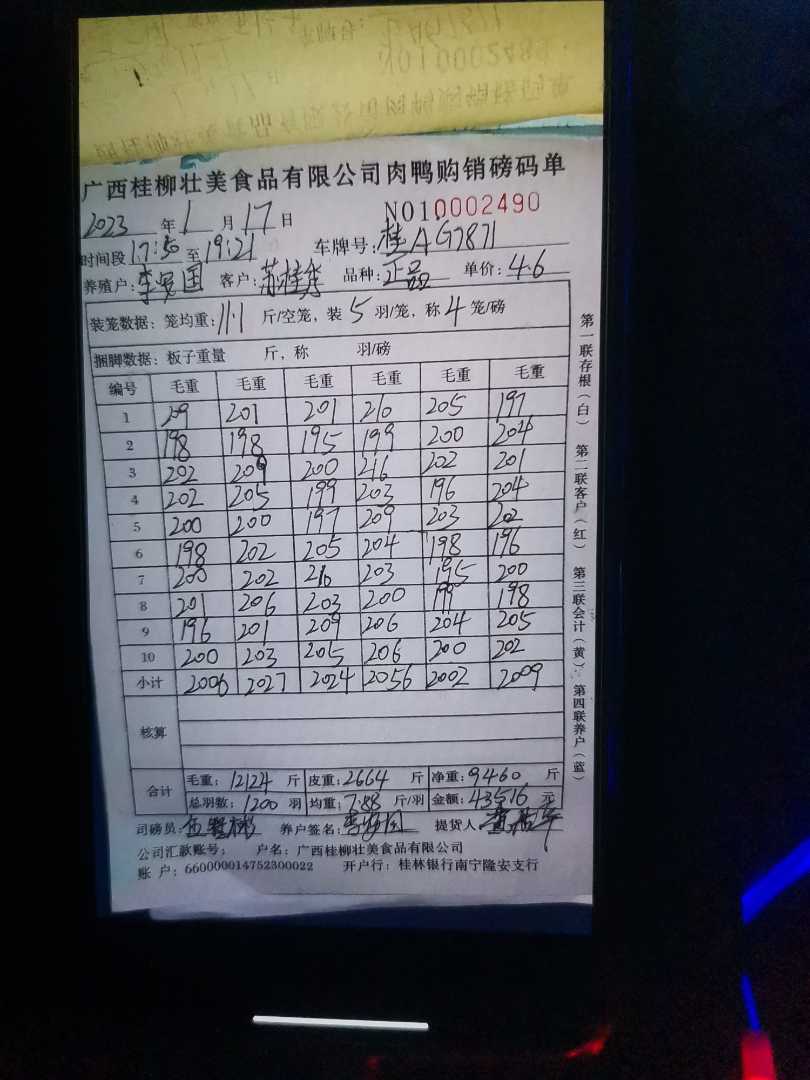 广西桂柳壮美食品有限公司肉鸭购销磅码单
2023 年 1 月 17 日 NO10002490
时间段 17:50 至 19:21 车牌号: 桂AG7871
养殖户: 客户: 苏桂 品种: 正品 单价: 4.6
装笼数据: 笼均重: 11.1 斤/空笼, 装 5 羽/笼, 称 4 笼/磅
捆脚数据: 板子重量 斤, 称 羽/磅
编号 毛重 毛重 毛重 毛重 毛重 毛重
1 209 201 201 210 205 197
2 198 198 195 199 200 204
3 202 209 200 216 202 201
4 202 205 199 203 196 204
5 200 200 197 209 203 202
6 198 202 205 204 198 196
7 200 202 210 203 195 200
8 201 206 203 200 199 198
9 196 201 209 206 204 205
10 200 203 205 206 200 202
小计 2006 2027 2024 2056 2002 2009
核算
合计 毛重: 12124 斤 皮重: 2664 斤 净重: 9460 斤
总羽数: 1200 羽 均重: 7.88 斤/羽 金额: 43516 元
司磅员: 养户签名: 提货人
公司汇款账号: 户名: 广西桂柳壮美食品有限公司
账 户: 660000014752300022 开户行: 桂林银行南宁隆安支行
第一联存根(白) 第二联客户(红) 第三联会计(黄) 第四联养户(蓝)